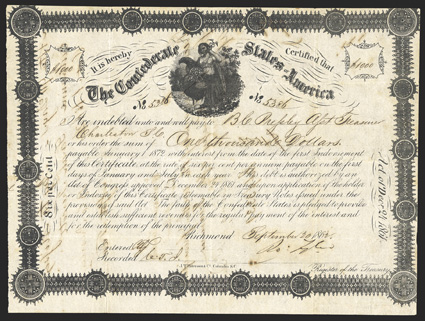 It is hereby Certified that
The Confederate States of America
$1000 $1000
No 5386 No 5386
Are indebted unto and will pay to B. C. Pressley Asst Treasr
Charleston S.C.
or his order the sum of One thousand Dollars
payable January 1 1872 with interest from the date of the first indorsement
of this Certificate at the rate of six per cent per annum payable on the first
days of January and July in each year. This debt is authorized by an
Act of Congress approved December 24 1861 which upon application of the holder
or Indorser of this Certificate
provisions of said act. The faith of the Confederate States is pledged to provide
and establish sufficient revenues for the regular payment of the interest and
for the redemption of the principal
Richmond September 20 186
Entered
Recorded
Register of the Treasury
Six per Cent
Act of Decr 24 1861